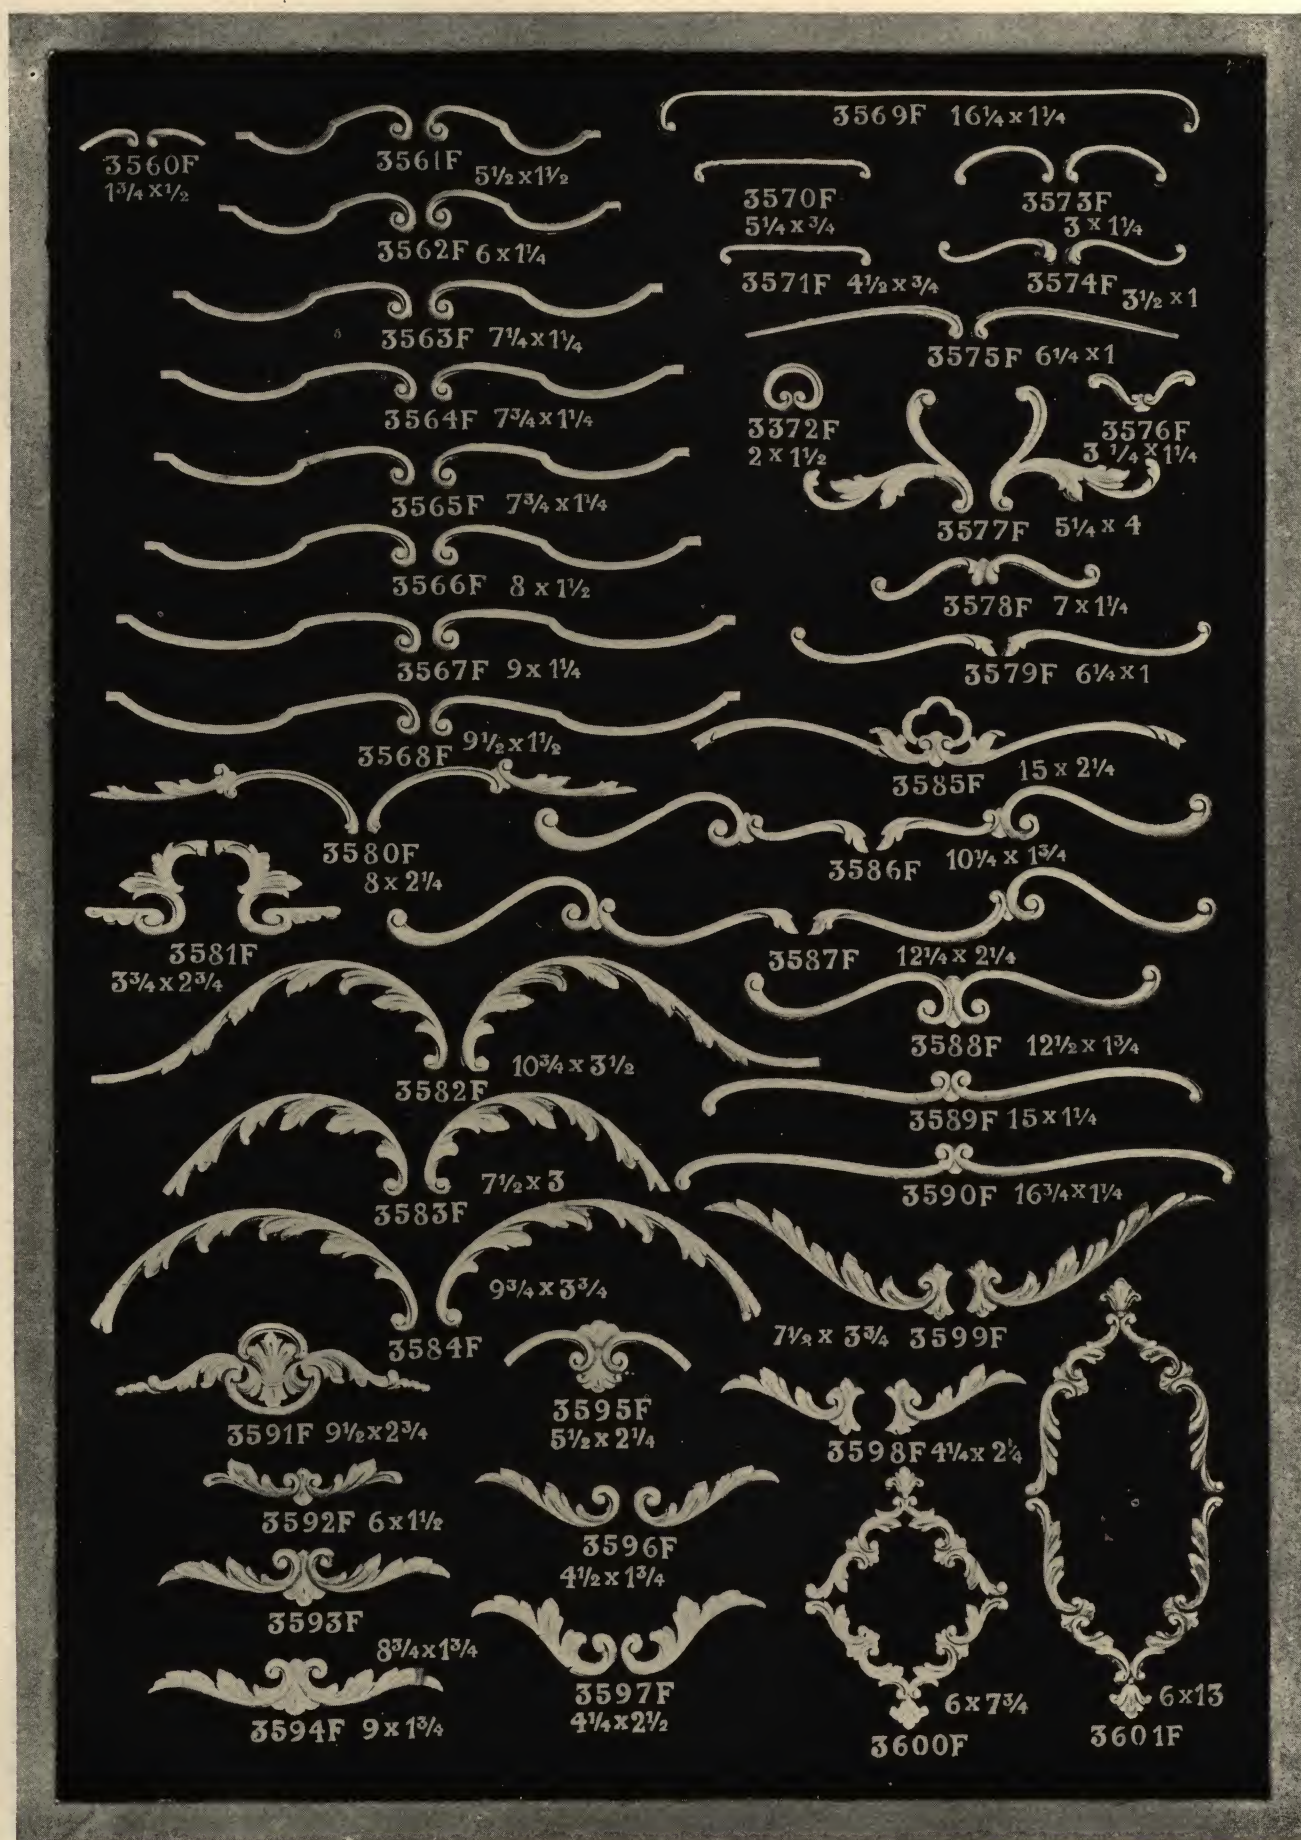 3560F
1¾ x ½
3561F 5½ x 1½
3562F 6 x 1¼
3563F 7¼ x 1¼
3564F 7¾ x 1¼
3565F 7¾ x 1¼
3566F 8 x 1½
3567F 9 x 1¼
3568F 9½ x 1½
3569F 16¼ x 1¼
3570F
5¼ x ¾
3573F
3 x 1¼
3571F 4½ x ¾
3574F 3½ x 1
3575F 6¼ x 1
3372F
2 x 1½
3576F
3 ¼ x 1¼
3577F 5¼ x 4
3578F 7 x 1¼
3579F 6¼ x 1
3585F 15 x 2¼
3580F
8 x 2¼
3586F 10¼ x 1¾
3581F
3¾ x 2¾
3587F 12¼ x 2¼
3588F 12½ x 1¾
3582F 10¾ x 3½
3589F 15 x 1¼
3583F 7½ x 3
3590F 16¾ x 1¼
3584F 9¾ x 3¾
7½ x 3¾ 3599F
3591F 9½ x 2¾
3595F
5½ x 2¼
3598F 4¼ x 2¼
3592F 6 x 1½
3596F
4½ x 1¾
3593F
8¾ x 1¾
3597F
4¼ x 2½
3594F 9 x 1¾
6 x 7¾
3600F
6 x 13
3601F